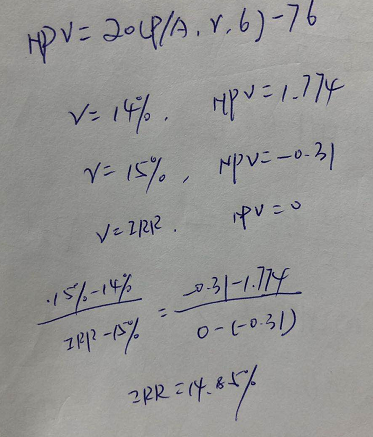 NPV=20(P/A,r,6)-76
r=14%, NPV=1.774
r=15%, NPV=-0.31
r=IRR. NPV=0
15%-14% / IRR-15% = -0.31-1.774 / 0-(-0.31)
IRR=14.85%